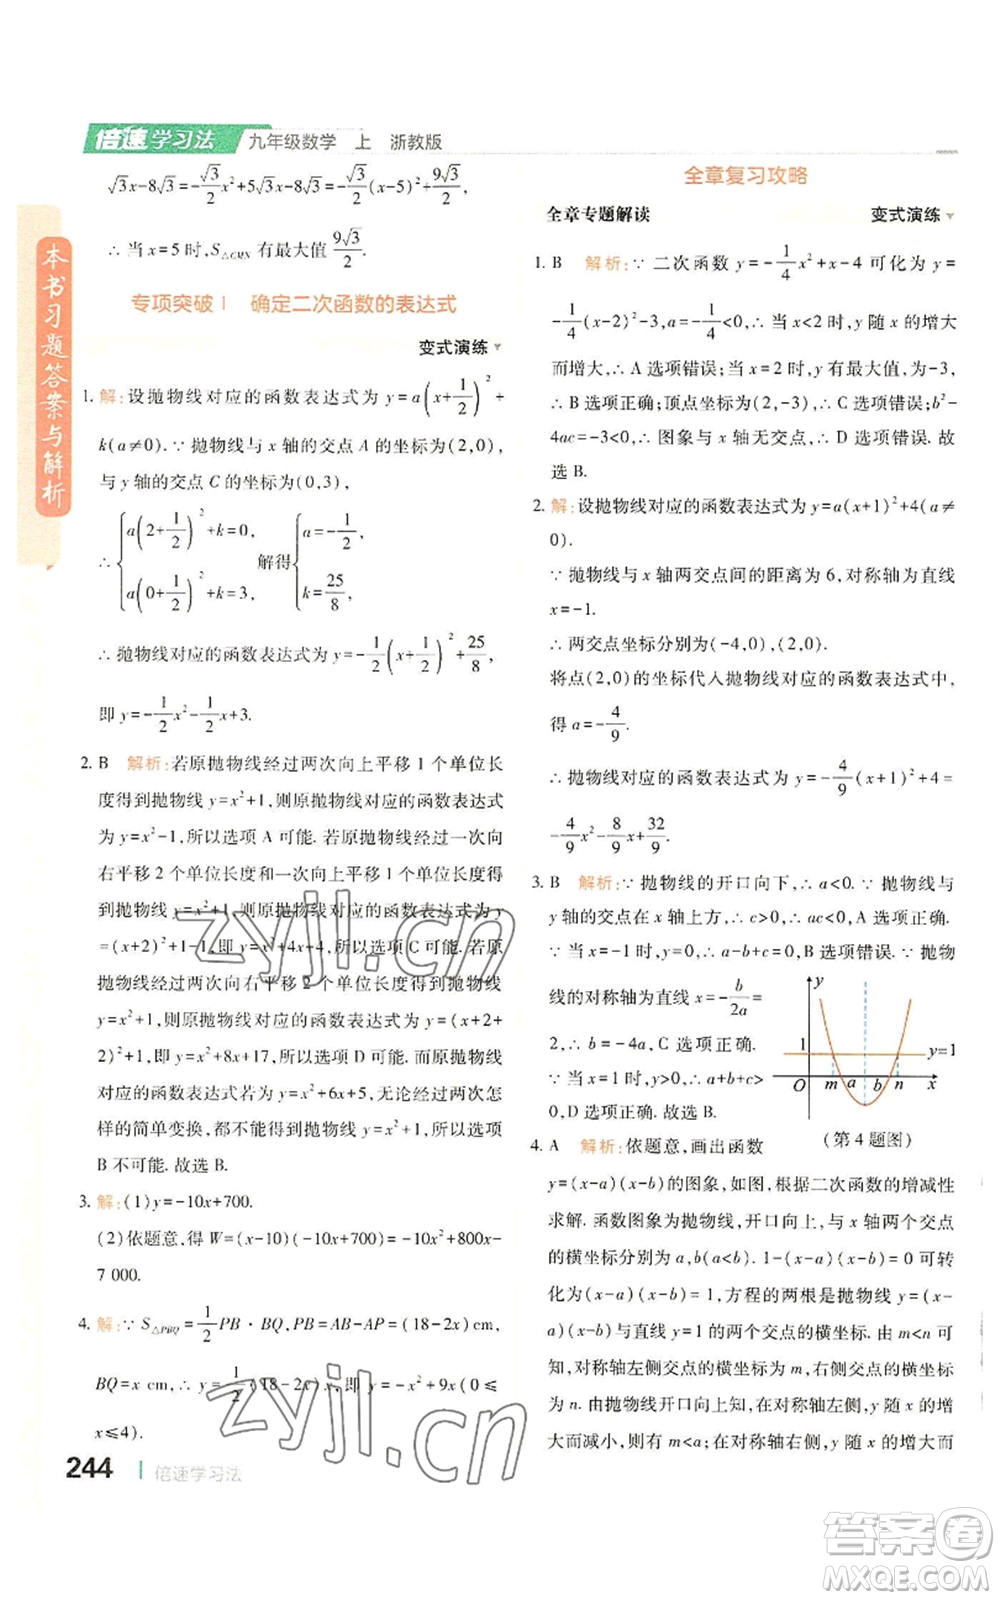 倍速学习法 九年级数学 上 浙教版
√3x-8√3=-√3/2x²+5√3x-8√3=-√3/2(x-5)²+9√3/2,
∴ 当 x=5 时,S△CMN 有最大值 9√3/2.
专项突破1 确定二次函数的表达式
变式演练
1. 解:设抛物线对应的函数表达式为 y=a(x+1/2)²+
k(a≠0).∵ 抛物线与 x 轴的交点 A 的坐标为(2,0),
与 y 轴的交点 C 的坐标为(0,3),
∴ {a(2+1/2)²+k=0, a(0+1/2)²+k=3, 解得 {a=-1/2, k=25/8,
∴ 抛物线对应的函数表达式为 y=-1/2(x+1/2)²+25/8,
即 y=-1/2x²-1/2x+3.
2. B 解析:若原抛物线经过两次向上平移 1 个单位长
度得到抛物线 y=x²+1,则原抛物线对应的函数表达式
为 y=x²-1,所以选项 A 可能. 若原抛物线经过一次向
右平移 2 个单位长度和一次向上平移 1 个单位长度得到
抛物线 y=x²+1,则原抛物线对应的函数表达式为 y
=(x+2)²+1-1,即 y=x²+4x+4,所以选项 C 可能. 若原
抛物线经过两次向右平移 2 个单位长度得到抛物线
y=x²+1,则原抛物线对应的函数表达式为 y=(x+2+
2)²+1,即 y=x²+8x+17,所以选项 D 可能. 而原抛物线
对应的函数表达式若为 y=x²+6x+5,无论经过两次怎样
的简单变换,都不能得到抛物线 y=x²+1,所以选项
B 不可能. 故选 B.
3. 解:(1)y=-10x+700.
(2)依题意,得 W=(x-10)(-10x+700)=-10x²+800x-
7 000.
4. 解:∵ S△PBQ=1/2PB·BQ,PB=AB-AP=(18-2x)cm,
BQ=x cm,∴ y=1/2(18-2x)x,即 y=-x²+9x(0≤
x≤4).
244 倍速学习法
本书习题答案与解析
全章复习攻略
全章专题解读 变式演练
1. B 解析:∵ 二次函数 y=-1/4x²+x-4 可化为 y=
-1/4(x-2)²-3,a=-1/4<0,∴ 当 x<2 时,y 随 x 的增大
而增大,∴ A 选项错误;当 x=2 时,y 有最大值,为-3,
∴ B 选项正确;顶点坐标为(2,-3),∴ C 选项错误;b²-
4ac=-3<0,∴ 图象与 x 轴无交点,∴ D 选项错误. 故
选 B.
2. 解:设抛物线对应的函数表达式为 y=a(x+1)²+4(a≠
0).
∵ 抛物线与 x 轴两交点间的距离为 6,对称轴为直线
x=-1.
∴ 两交点坐标分别为(-4,0),(2,0).
将点(2,0)的坐标代入抛物线对应的函数表达式中,
得 a=-4/9.
∴ 抛物线对应的函数表达式为 y=-4/9(x+1)²+4=
-4/9x²-8/9x+32/9.
3. B 解析:∵ 抛物线的开口向下,∴ a<0. ∵ 抛物线与
y 轴的交点在 x 轴上方,∴ c>0,∴ ac<0,A 选项正确.
∵ 当 x=-1 时,y=0,∴ a-b+c=0,B 选项错误. ∵ 抛物
线的对称轴为直线 x=-b/2a=
2,∴ b=-4a,C 选项正确.
∵ 当 x=1 时,y>0,∴ a+b+c>
0,D 选项正确. 故选 B.
y
1
y=1
O m a b n x
(第 4 题图)
4. A 解析:依题意,画出函数
y=(x-a)(x-b)的图象,如图. 根据二次函数的增减性
求解. 函数图象为抛物线,开口向上,与 x 轴两个交点
的横坐标分别为 a,b(a<b). 1-(x-a)(x-b)=0 可转
化为(x-a)(x-b)=1,方程的两根是抛物线 y=(x-a)
(x-b)与直线 y=1 的两个交点的横坐标. 由 m<n 可
知,对称轴左侧交点的横坐标为 m,右侧交点的横坐标
为 n. 由抛物线开口向上知,在对称轴左侧,y 随 x 的增
大而减小,则有 m<a;在对称轴右侧,y 随 x 的增大而
zyjl.cn
zyjl.cn
答案卷
MXQE.COM